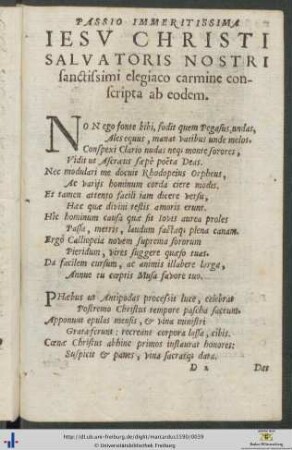 PASSIO IMMERITISSIMA
IESV CHRISTI
SALVATORIS NOSTRI
sanctissimi elegiaco carmine con-
scripta ab eodem.
NON ego fonte bibi, fudit quem Pegasus, undas,
Ales equus, manat vatibus unde melos.
Conspexi Clario nudas neq; monte sorores,
Vidit ut Ascræus sæpè poëta Deas.
Nec modulari me docuit Rhodopeius Orpheus,
Ac varijs hominum corda ciere modis.
Et tamen attento facili iam dicere versu,
Hæc quæ divini testis amoris erunt.
Hîc hominum causâ quæ sit Iovis aurea proles
Passa, metris, laudum factaq; plena canam.
Ergò Calliopeia novem suprema sororum
Pieridum, vires suggere quæso tuas.
Da facilem cursum, ac animis illabere larga,
Annue tu cœptis Musa favore tuo.
PHœbus ut Antipodas processit luce, celebrat
Postremo Christus tempore pascha sacrum.
Apponunt epulas mensis, & vina ministri
Grataferunt: recreant corpora lassa, cibis.
Cœnæ Christus abhinc primos instaurat honores:
Suspicit & panes, vina sacratiq; dara.
D 2 Dat
http://dl.ub.uni-freiburg.de/diglit/martandus1590/0039
© Universitätsbibliothek Freiburg
Baden-Württemberg